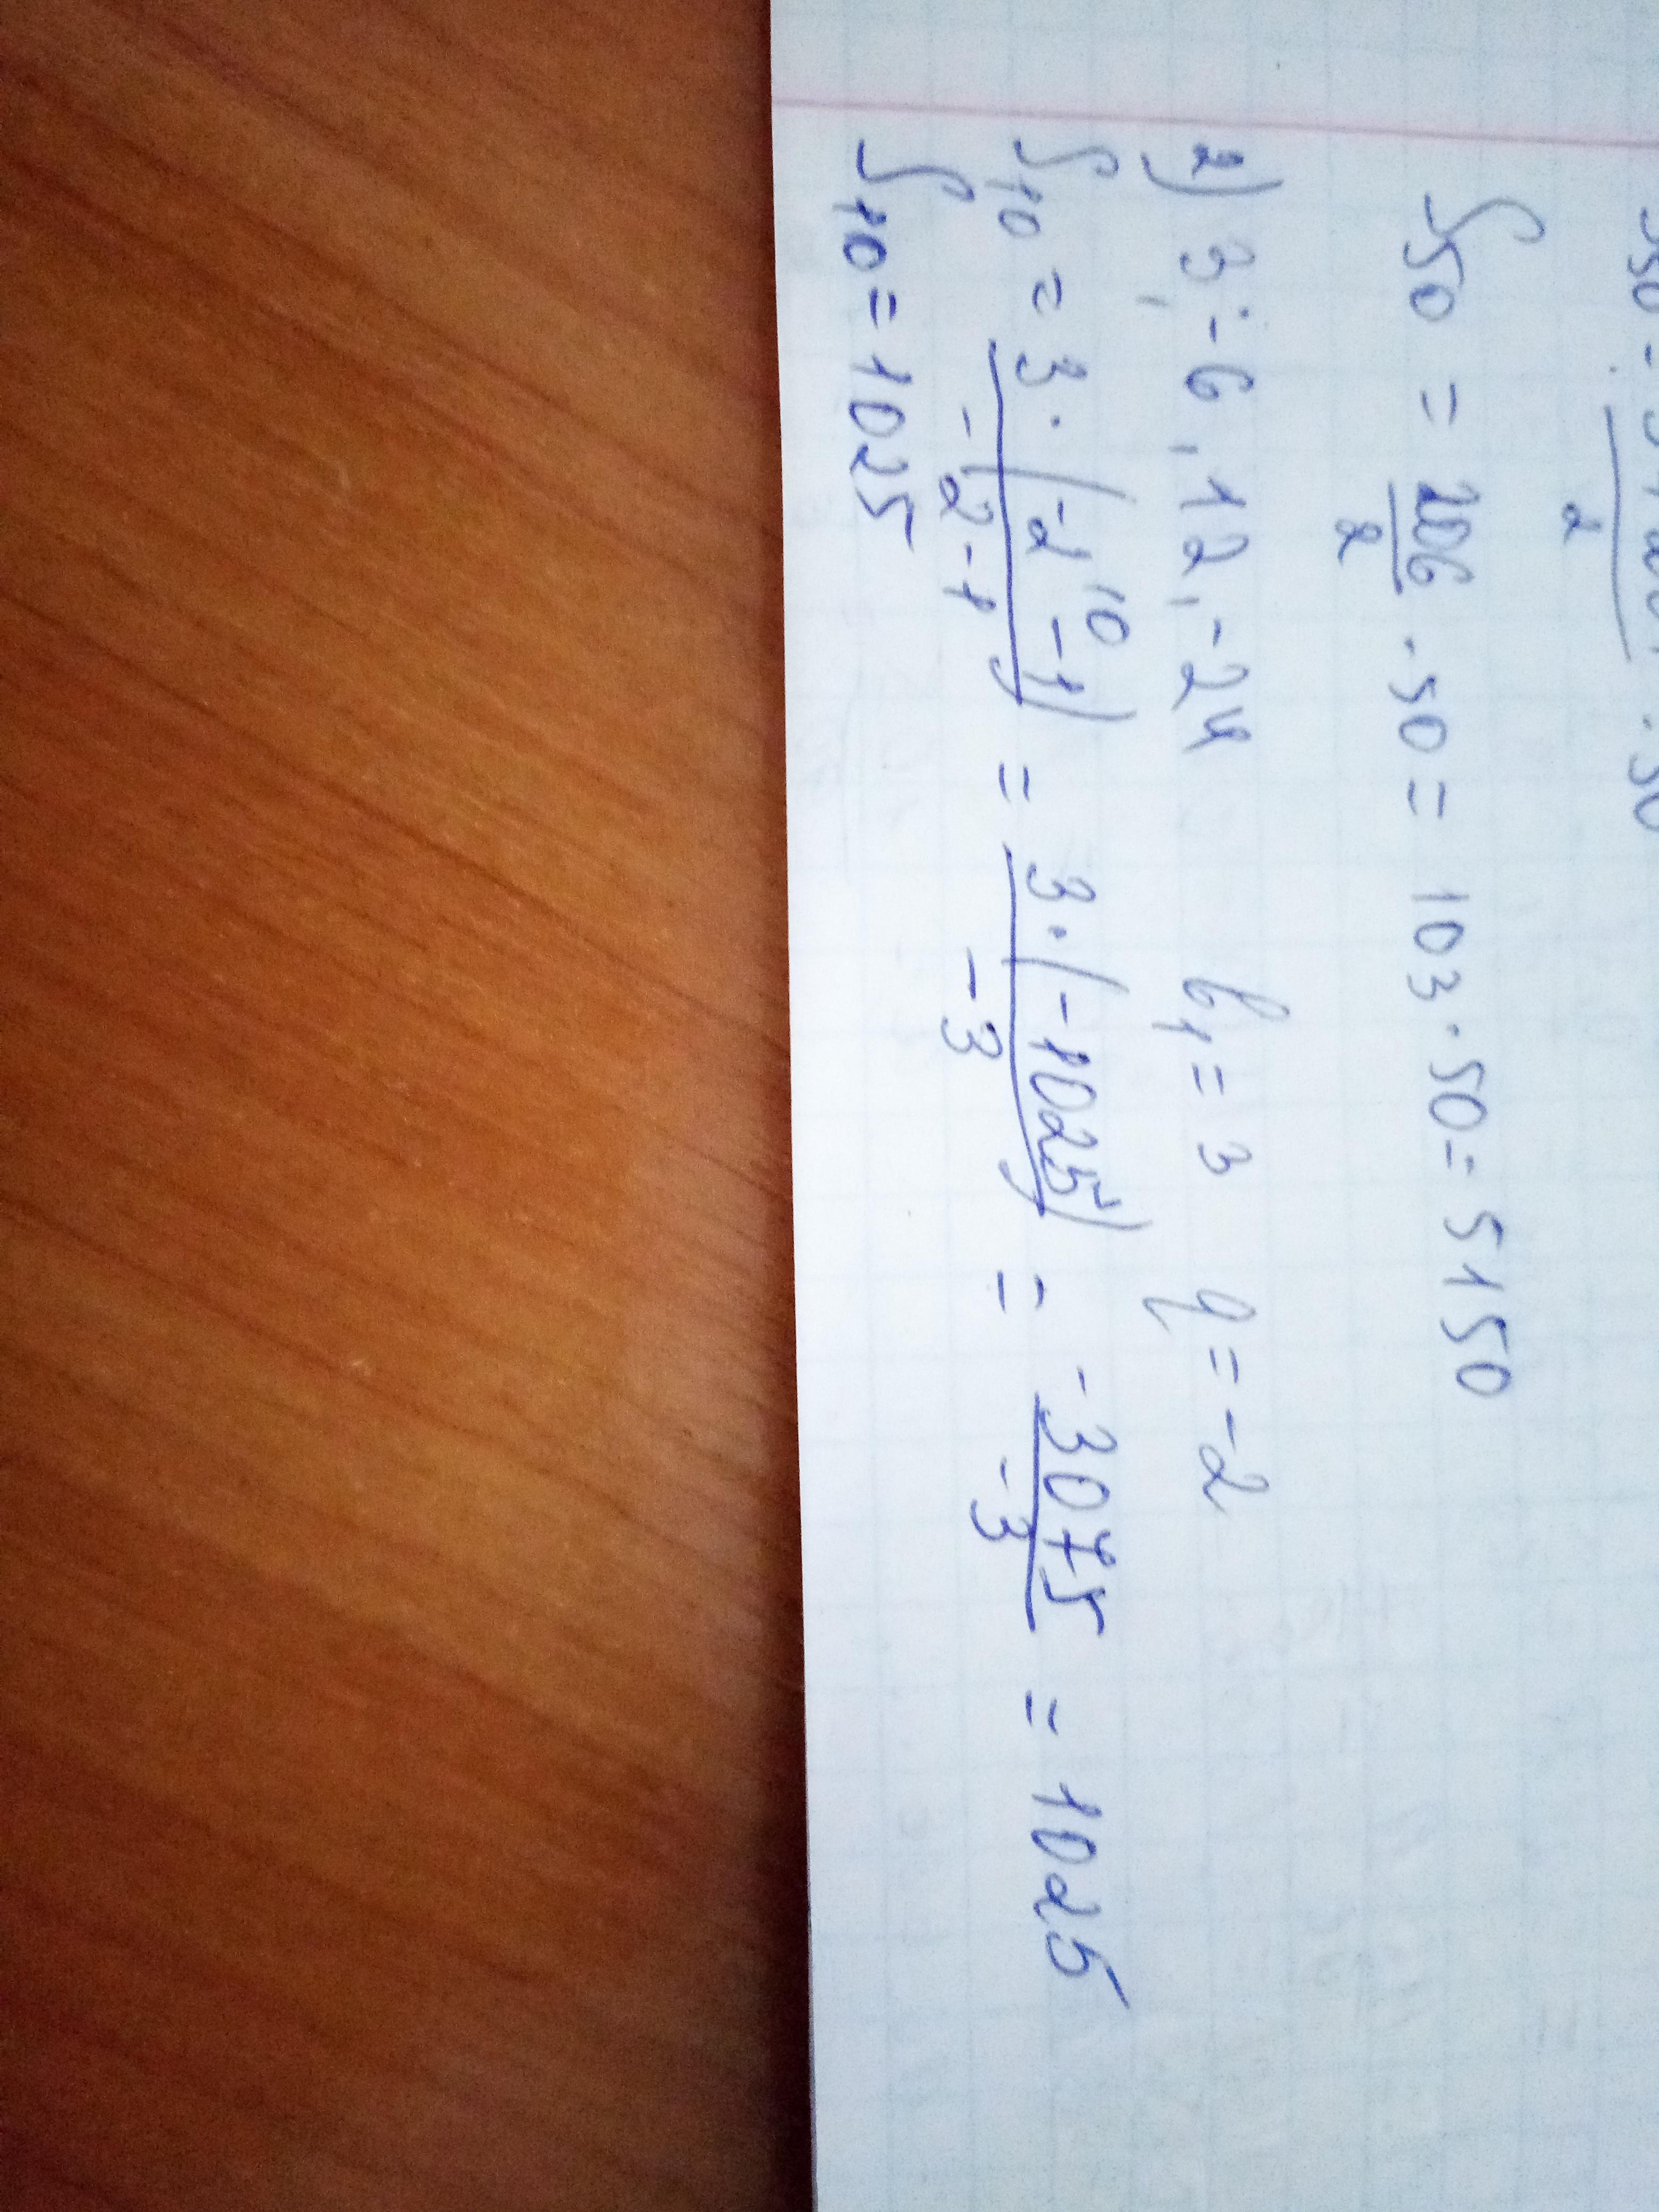 S₅₀ = 206/2 · 50 = 103 · 50 = 5150
2) 3; -6, 12, -24 b₁ = 3 q = -2
S₁₀ = 3·(-2¹⁰-1)/-2-1 = 3·(-1025)/-3 = -3075/-3 = 1025
S₁₀ = 1025